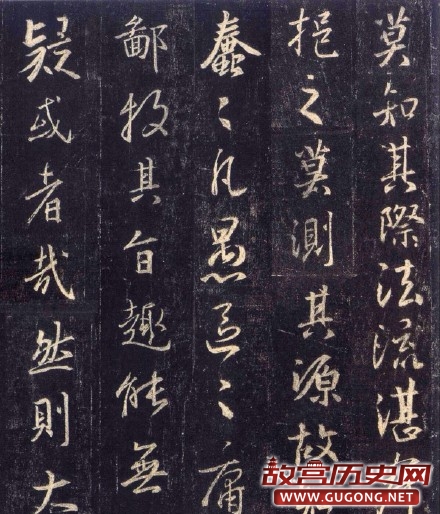 莫知其際法流湛
挹之莫測其源故
蠢〻凡愚區〻庸
鄙投其旨趣能無
疑或者哉然則大
故宫历史网
WWW.GUGONG.NET